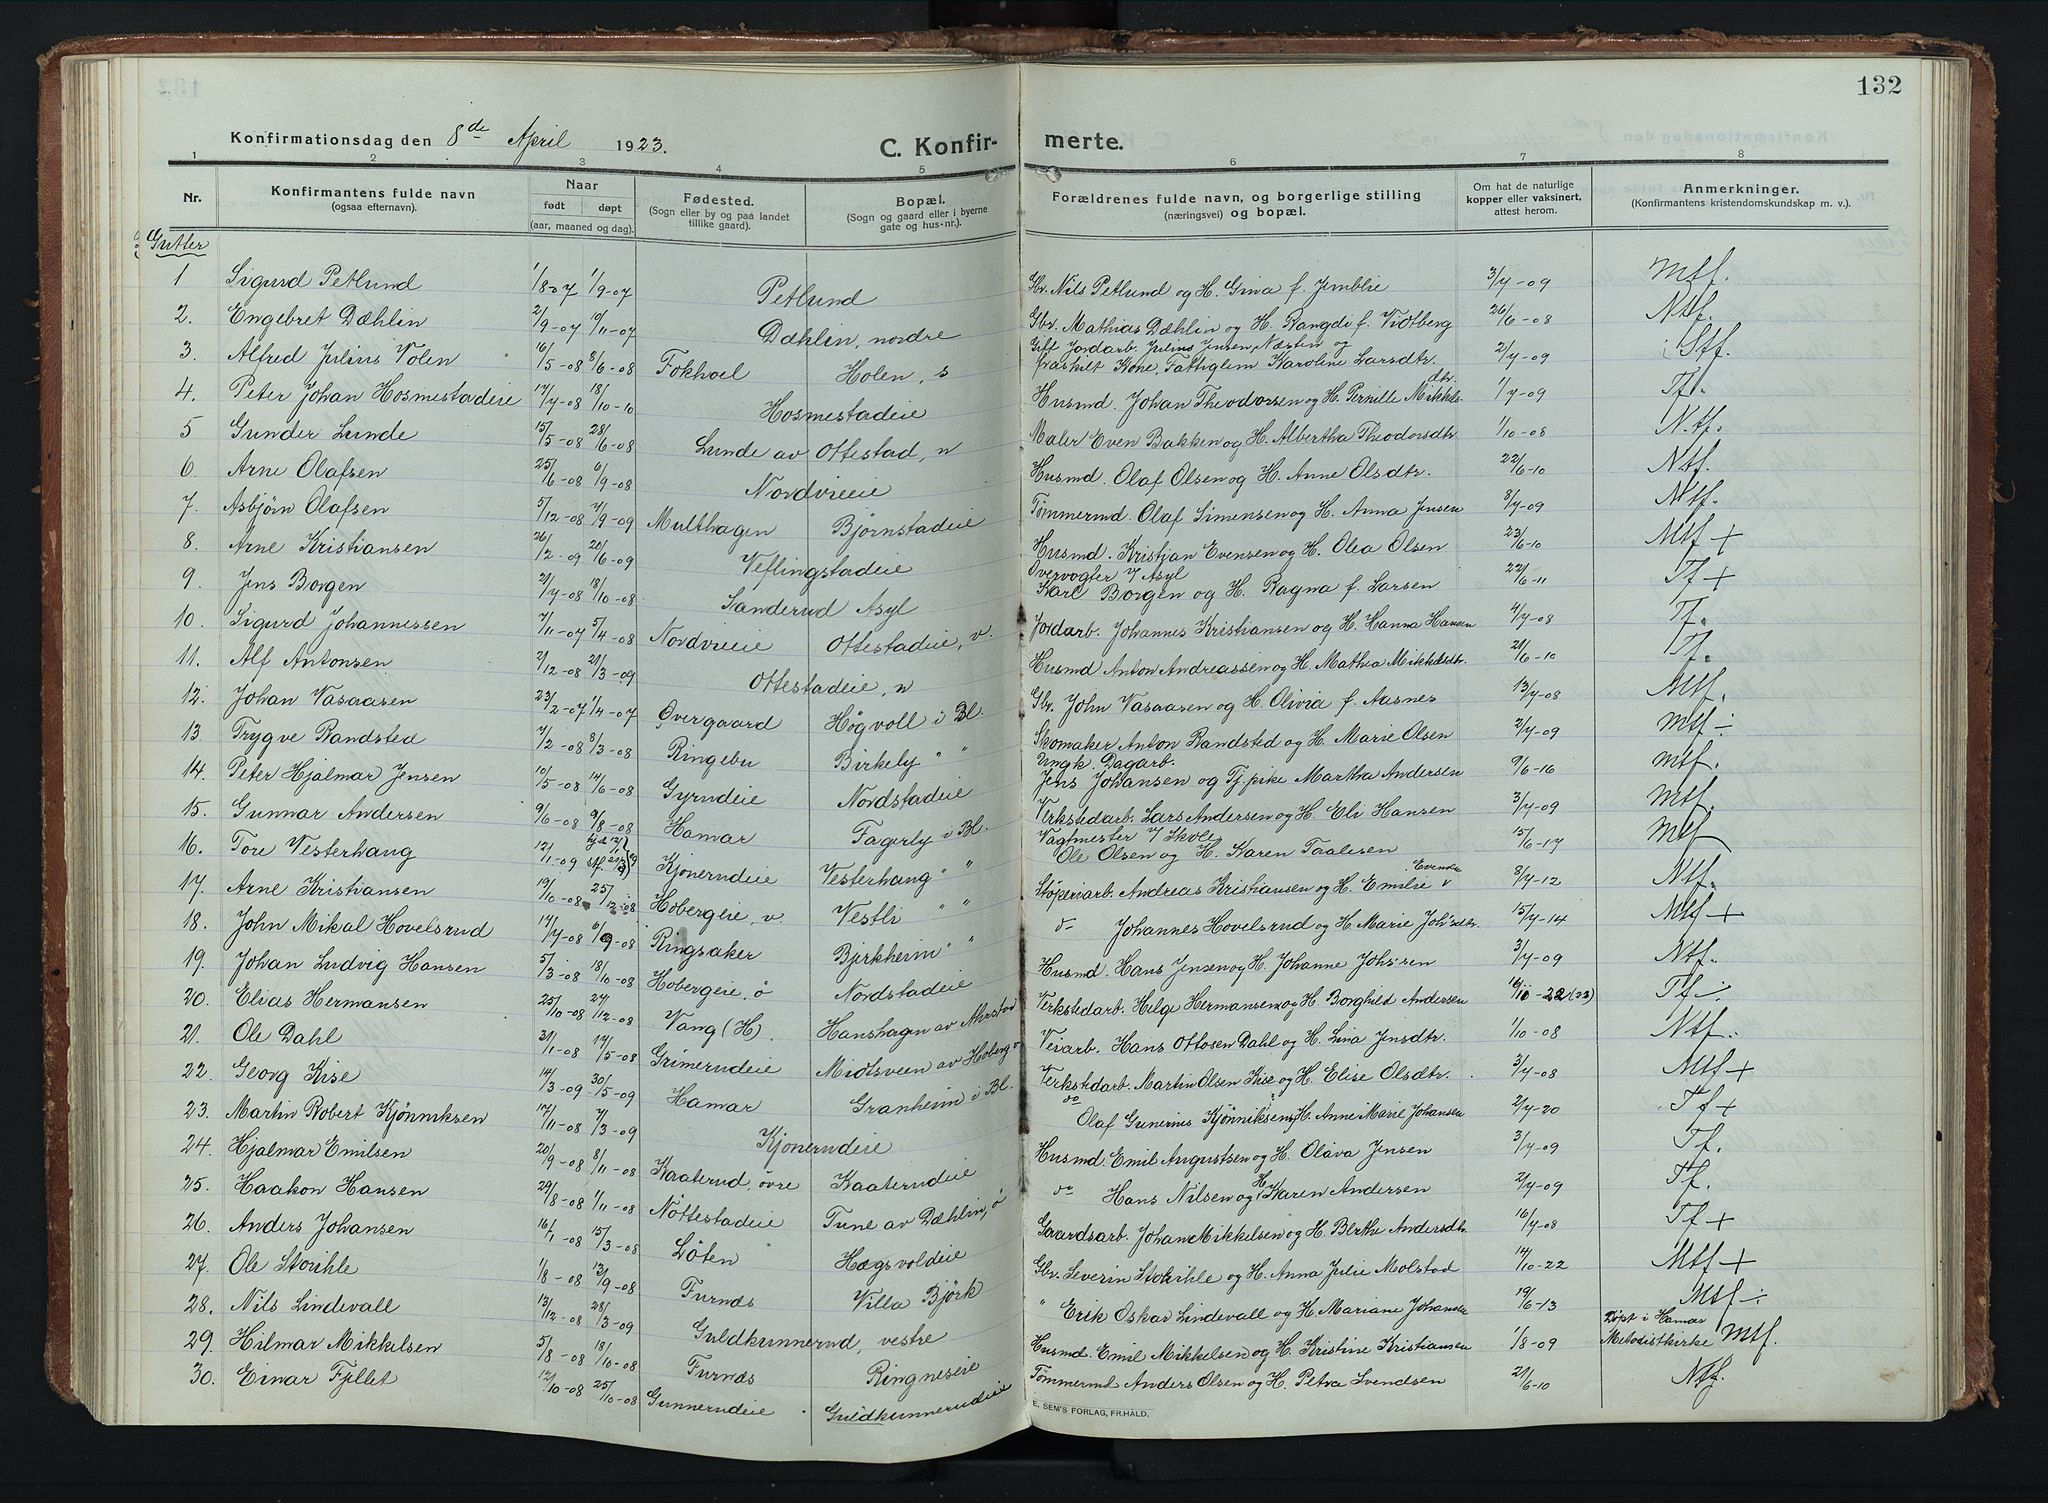 132
Konfirmationsdag den 8de April 1923.
C. Konfirmerte.
1 2 3 4 5 6 7 8
Nr. Konfirmantens fulde navn (ogsaa efternavn). Naar født døpt (aar, maaned og dag). Fødested. (Sogn eller by og paa landet tillike gaard). Bopæl. (Sogn og gaard eller i byerne gate og hus-nr.). Forældrenes fulde navn, og borgerlige stilling (næringsvei) og bopæl. Om hat de naturlige kopper eller vaksinert, attest herom. Anmerkninger. (Konfirmantens kristendomskundskap m. v.).
Gutter
1 Sigurd Petlund 1/8-07 1/9-07 Petlund Gbr. Nils Petlund og H. Gina f. Jemblie 3/7-09 Mtf.
2. Engebret Dæhlin 2/9-07 10/11-07 Dæhlin, nordre Gbr. Mathias Dæhlin og H. Rangdi f. Vidtberg 26/6-08 Ntf.
3. Alfred Julius Volen 16/5-08 8/6-08 Fokhoel Holen, s Gift Jordarb. Julius Jensen, Næsten og fraskilt Kone, Fattiglem Karoline Larsdtr. 2/7-09 Stf.
4. Peter Johan Hosmestadeie 17/7-08 18/10-10 Hosmestadeie Husmd. Johan Theodorsen og H. Pernille Mikkelsdtr. 1/7-09 Tf.
5 Gunder Lunde 15/5-08 28/6-08 Lunde av Ottestad, n Maler Even Bakken og H. Albertha Theodorsdtr 1/10-08 Ntf.
6. Arne Olafsen 25/6-08 6/9-08 Nordvieeie Husmd. Olaf Olsen og H. Anne Olsdtr. 22/6-10 Ntf.
7. Asbjørn Olafsen 5/12-08 7/9-09 Multhagen Bjørnstadeie Tømmermd. Olaf Simensen og H. Anna Jensen 8/7-09 Ntf.
8. Arne Kristiansen 26/2-09 20/6-09 Veflingstadeie Husmd. Kristian Evensen og H. Olea Olsen 23/6-10 Mtf +
9. Jens Borgen 21/7-08 18/10-08 Sanderud Asyl Overvogter v/ Asyl Karl Borgen og H. Ragna f. Larsen 22/6-11 Tf +
10. Sigurd Johannessen 7/11-07 5/4-08 Nordvieeie Ottestadeie, v. Jordarb. Johannes Kristiansen og H. Hanna Hansen 4/7-08 Tf.
11. Alf Antonsen 2/12-08 21/3-09 Ottestadeie, n Husmd Anton Andreassen og H. Mathea Mikkelsdtr. 21/6-10 Tf.
12. Johan Vasaasen 23/2-07 1/4-07 Øvergaard Høgvoll i Bl. Gbr. John Vasaasen og H. Olivia f. Aasnes 13/7-08 Mtf.
13 Trygve Randsted 7/2-08 8/3-08 Ringebu Birkely " " Skomaker Anton Randsted og H. Marie Olsen 2/7-09 Mtf ÷
14. Peter Hjalmar Jensen 10/5-08 14/6-08 Gyrudeie Nordstadeie Ungk. Dagarb. Jens Johansen og Tj.pike Martha Andersen 9/6-16 Mtf.
15. Gunnar Andersen 9/6-08 9/8-08 Hamar Fagerly i Bl. Verkstedarb. Lars Andersen og H. Eli Hansen 3/7-09 Mtf.
16. Tore Vesterhaug 12/1-09 Kjonerudeie Vesterhaug " " Vagtmester v/ Skole Ole Olsen og H. Karen Taalesen 15/6-17 Mtf
17. Arne Kristiansen 19/10-08 25/12-08 Hobergeie, v Vestli " " Støperiarb. Andreas Kristiansen og H. Emilie Evensen 8/7-12 Ntf.
18. John Mikal Hovelsrud 14/7-08 6/9-08 Ringsaker Bjerkheim " " do Johannes Hovelsrud og H. Marie Joh'sdtr. 15/7-14 Mtf +
19. Johan Ludvig Hansen 5/3-08 18/10-08 Hobergeie, ö Nordstadeie Husmd. Hans Jensen og H. Johanne Johs'ren 3/7-09 Ntf.
20. Elias Hermansen 25/10-08 27/12-08 Vang (H). Hanshagen av Ahrstad Verkstedarb. Helge Hermansen og H. Borghild Andersen 16/10-22 (23) Tf ÷
21. Ole Dahl 31/1-08 17/5-08 Grimerudeie Midtsveen av Hoberg v Veiarb. Hans Ottosen Dahl og H. Lina Jensdtr. 1/10-08 Ntf.
22. Georg Kise 14/3-09 30/5-09 Hamar Granheim i Bl. Verkstedarb. Martin Olsen Kise og H. Elise Olsdtr. 3/7-08 Mtf +
23. Martin Robert Kjønniksen 17/11-08 7/3-09 Kjonerudeie do Olaf Gunerius Kjønniksen og H. Anne Marie Johansen 2/7-20 Tf +
24. Hjalmar Emilsen 20/9-08 8/11-08 Kaaterud, øvre Kaaterudeie Husmd. Emil Augustsen og H. Olava Jensen 3/7-09 Tf.
25. Haakon Hansen 29/8-08 1/11-08 Nöttestadeie Tune av Dæhlin, ö do Hans Nilsen og H. Karen Andersen 2/7-09 Tf.
26. Anders Johansen 16/1-08 15/3-08 Löten Hægsvoldeie Gaardsarb. Johan Mikkelsen og H. Berthe Andersdtr. 16/7-08 Tf +
27. Ole Storihle 1/8-08 13/9-08 Furnes Villa Björk Gbr. Severin Storihle og H. Anna Julie Molstad 14/10-22 Mtf +
28. Nils Lindevall 13/12-08 28/3-09 Guldkunnerud, vestre " Erik Oskar Lindevall og H. Mariane Johansen 19/6-13 Mtf ÷
29. Hilmar Mikkelsen 5/8-08 18/10-08 Furnes Ringneseie Husmd. Emil Mikkelsen og H. Kristine Kristiansen 1/8-09 Døpt i Hamar Metodistkirke Mtf.
30. Einar Fjellet 12/10-08 25/10-08 Gunnerudeie Guldkunnerudeie Tömmermd Anders Olsen og H. Petra Svendsen 21/6-10 Ntf
E. SEM'S FORLAG, FR.HALD.